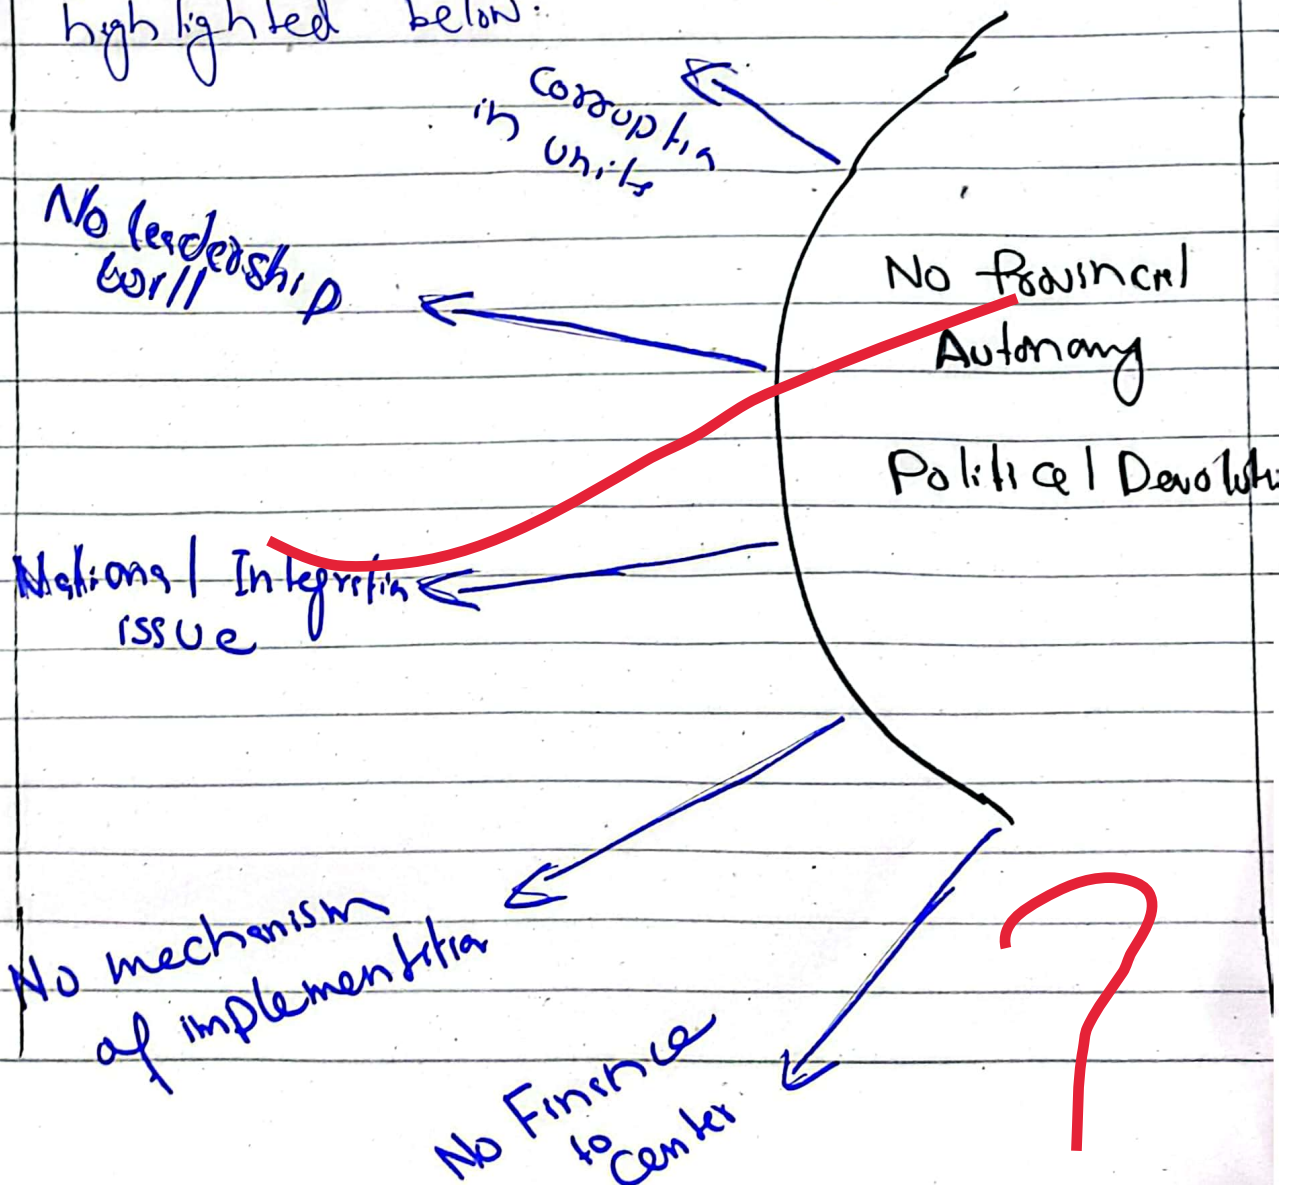 highlighted below:
Corruption
in units
No leadership
will
No Provincial
Autonomy
Political Devolution
National Integration
issue
No mechanism
of implementation
No Finance
to
Center
?